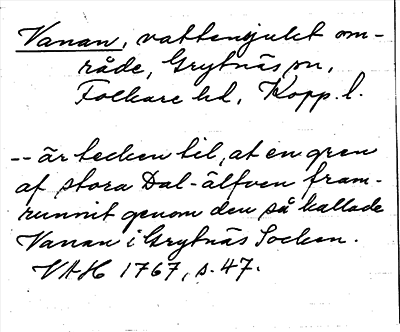 Vanan, vattensjukt om-
råde, Grytnäs sn,
Folkare hd, Kopp. l.
-- är tecken til, at en gren
af stora Dal-älfven fram-
runnit genom den så kallade
Vanan i Grytnäs Socken.
VAH 1767, s. 47.